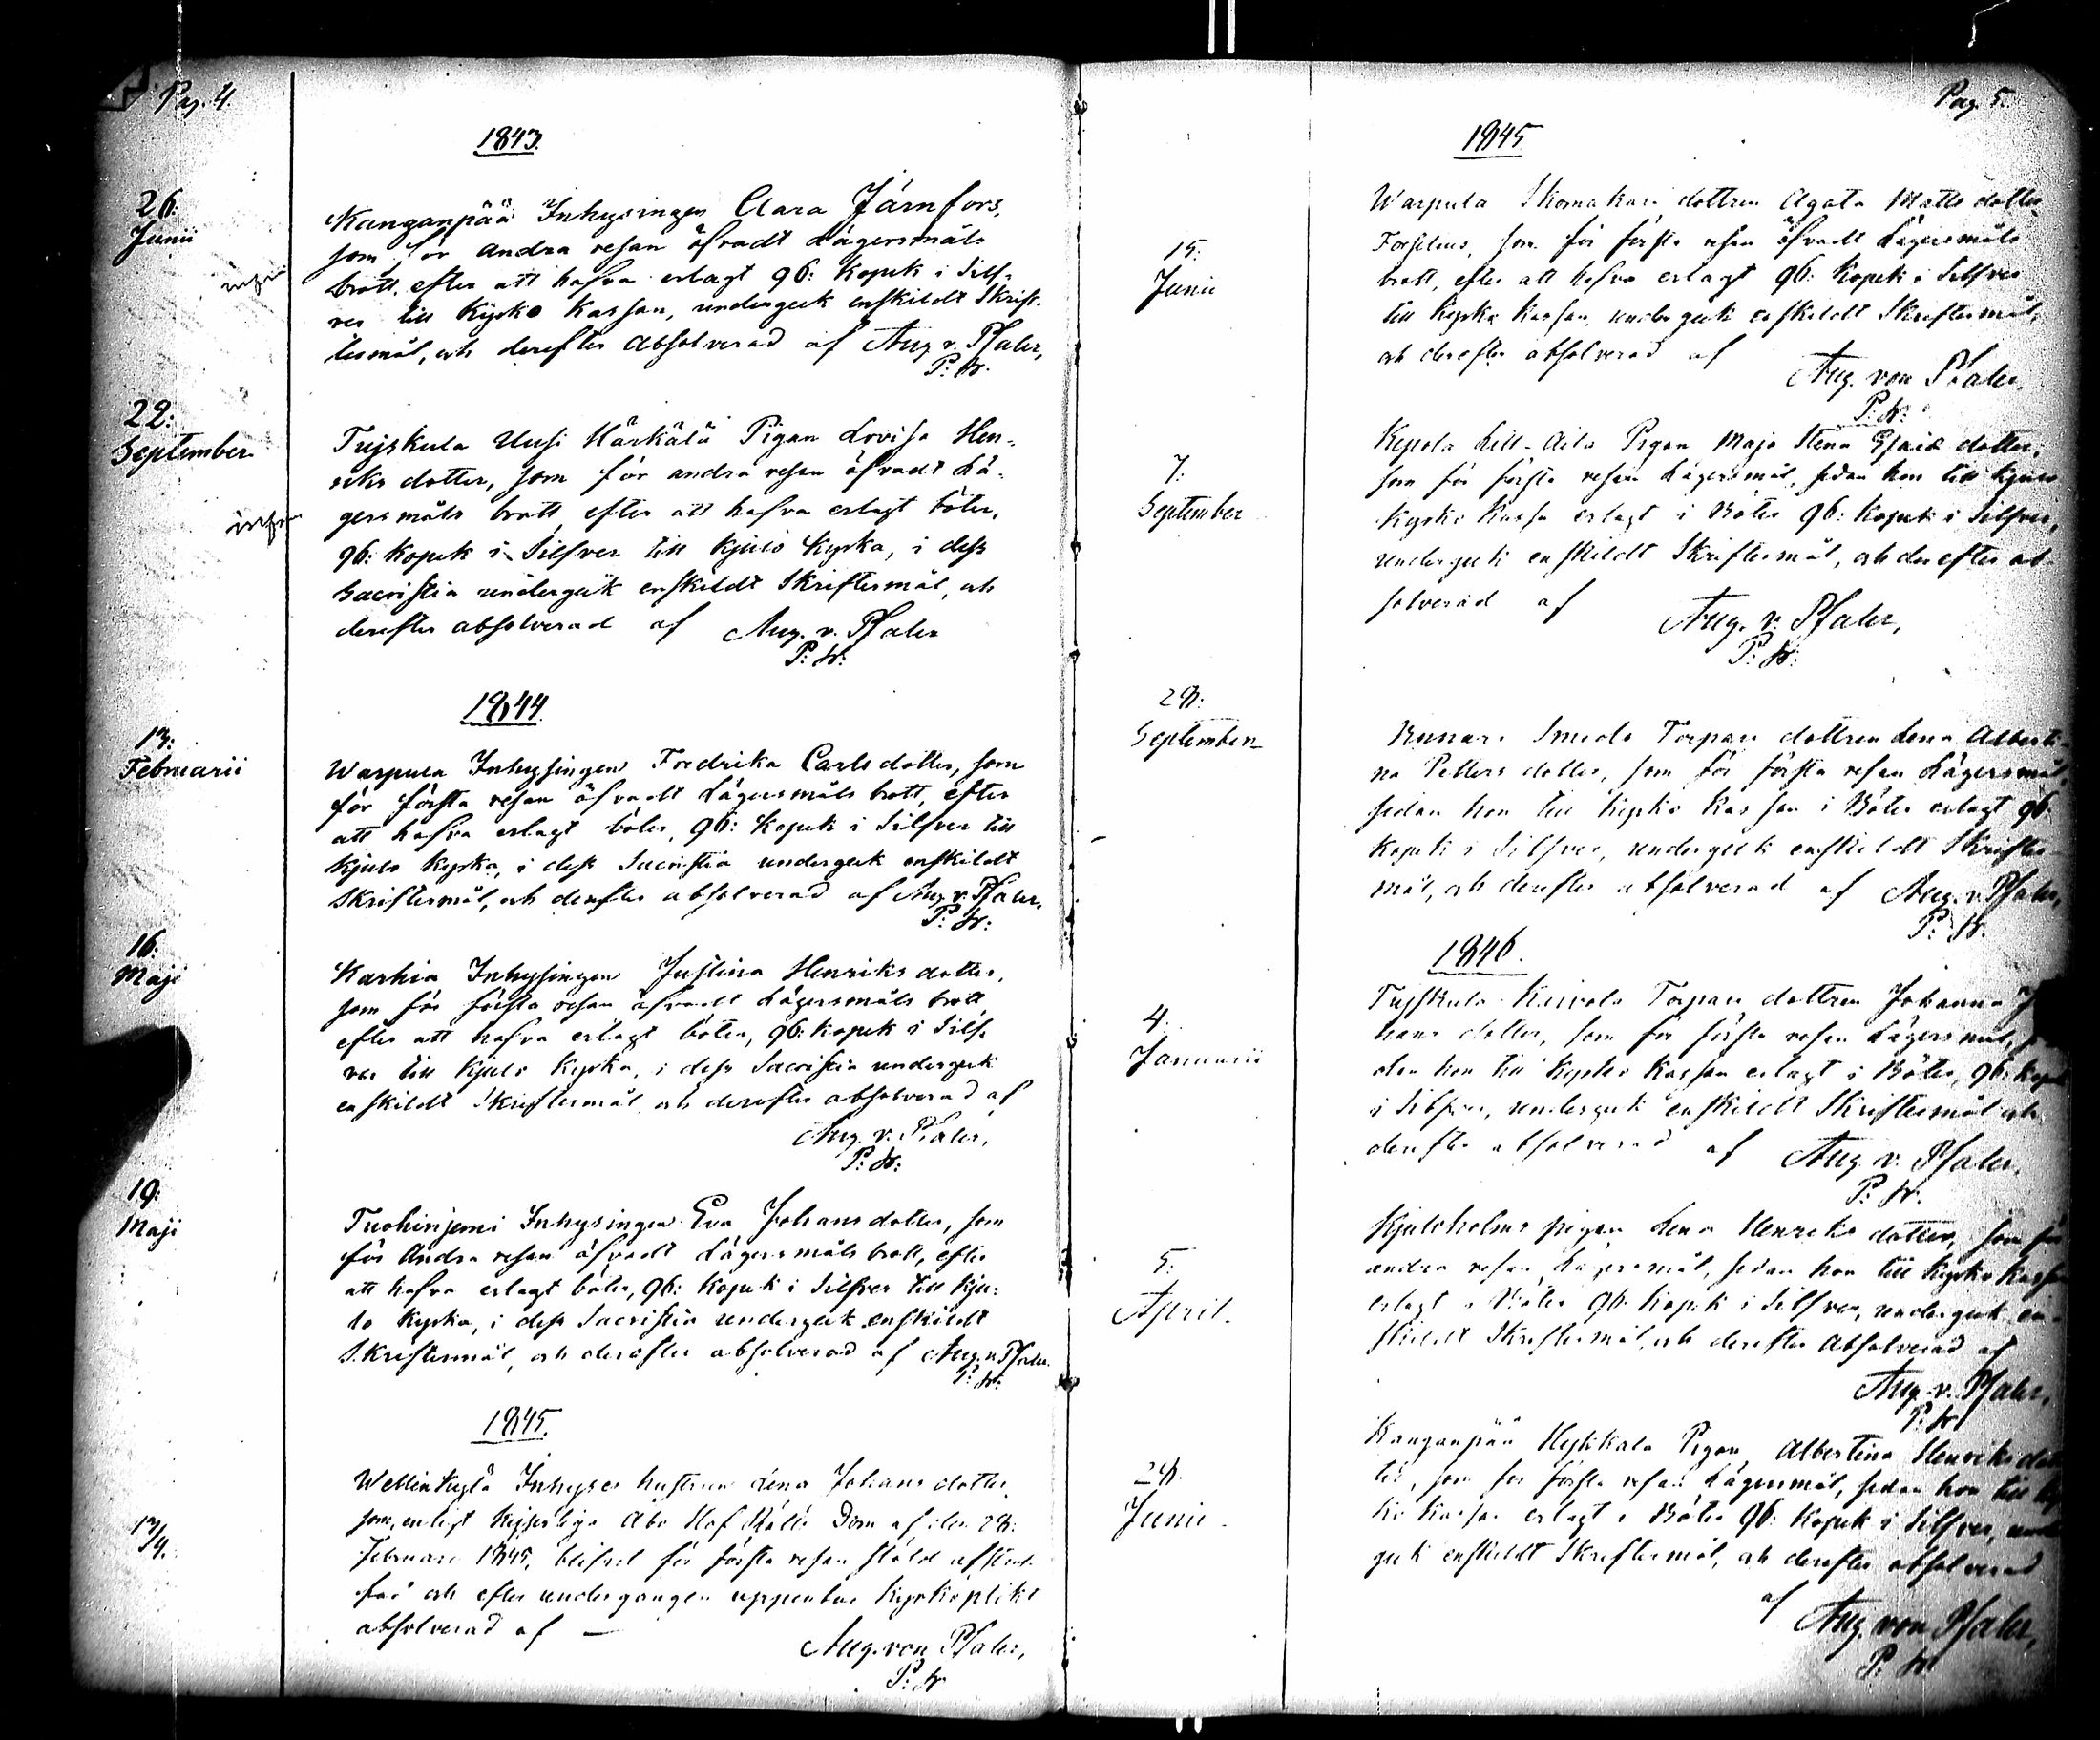 Pag. 4.
1843.
26:
Junii
Kanganpää Inhysingen Clara Järnfors,
som för andra resan öfvadt Lägersmåls
brott, efter att hafva erlagt 96: Kopek i Silf-
ver till Kyrko Kassan, undergick enskildt Skrift-
ermål, och derefter absolverad af Aug. v. Pfaler,
P: hr:
22:
September
Tujskula Uusi Härkälä Pigan Lovisa Hen-
riks dotter, som för andra resan öfvadt Lä-
gersmåls brott, efter att hafva erlagt böter,
96: Kopek i Silfver till Kjulo Kyrka, i dess
Sacristia undergick enskildt Skriftermål, och
derefter absolverad af Aug. v. Pfaler
P: hr:
1844.
13:
Februarii
Warpula Inhysingen Fredrika Carls dotter, som
för första resan öfvadt Lägersmåls brott, efter
att hafva erlagt böter, 96: Kopek i Silfver till
Kjulo Kyrka, i dess Sacristia undergick enskildt
Skriftermål, och derefter absolverad af Aug. v. Pfaler,
P: hr:
16.
Maji
Karhia Inhysingen Justina Henriks dotter,
som för första resan öfvadt Lägersmåls brott,
efter att hafva erlagt böter, 96: Kopek i Silf-
ver till Kjulo Kyrka, i dess Sacristia undergick
enskildt Skriftermål och derefter absolverad af
Aug. v. Pfaler,
P: hr:
19:
Maji
Tuohiniemi Inhysingen Eva Johans dotter, som
för Andra resan öfvadt Lägersmåls brott, efter
att hafva erlagt böter, 96: Kopek i Silfver till Kju-
lo Kyrka, i dess Sacristia undergick enskildt
Skriftermål, och derefter absolverad af Aug. v. Pfaler.
P: hr:
1845.
13/4.
Wellinkylä Inhyses hustrun Lena Johans dotter,
som, enligt Kejserliga Åbo Hof Rätts Dom af den 28:
Februari 1845, blifvit för första resan stöld afstraf-
fad och efter undergången uppenbar Kyrkoplikt
absolverad af —
Aug. von Pfaler,
P: hr
Pag 5.
1845
15:
Junii
Warpula Skomakare dottren Agata Matts dotter
Forselius, som för första resan öfvadt Lägersmåls
brott, efter att hafva erlagt 96: Kopek i Silfver
till Kyrko Kassan, undergick enskildt Skriftermål,
och derefter absolverad af
Aug. von Pfaler,
P: hr:
7:
September
Kepola Lill-Aila Pigan Maja Stena Esaias dotter,
som för första resan Lägersmål, sedan hon till Kjulo
Kyrko Kassa erlagt i Böter 96: Kopek i Silfver,
undergick enskildt Skriftermål, och derefter ab-
solverad af Aug. v. Pfaler,
P: hr:
28:
September
Smeds Torpare dottren Lena Alberti-
na Petters dotter, som för första resan Lägersmål,
sedan hon till Kyrko Kassan i Böter erlagt 96:
Kopek i Silfver, undergick enskildt Skrifter-
mål, och derefter absolverad af Aug. v. Pfaler,
P: hr.
1846.
4.
Januarii
Tujskula Torpare dottren Johanna
hans dotter, som för första resan Lägersmål,
dan hon till Kyrko Kassan erlagt i Böter, 96: Kopek
i Silfver, undergick enskildt Skriftermål och
derefter absolverad af Aug. v. Pfaler.
P: hr.
5.
April.
Kjuloholms pigan Lena Henriks dotter, som för
andra resan Lägersmål, sedan hon till Kyrko Kassan
erlagt i Böter 96. Kopek i Silfver, undergick en-
skildt Skriftermål, och derefter Absolverad af
Aug. v. Pfaler,
P. hr
28.
Junii
Kanganpää Heikkala Pigan Albertina Henriks dot-
ter, som för första resan Lägersmål, sedan hon till Kyr-
ko Kassan erlagt i Böter 96: Kopek i Silfver, under-
gick enskildt Skriftermål, och derefter absolverad
af Aug. von Pfaler,
P. hr